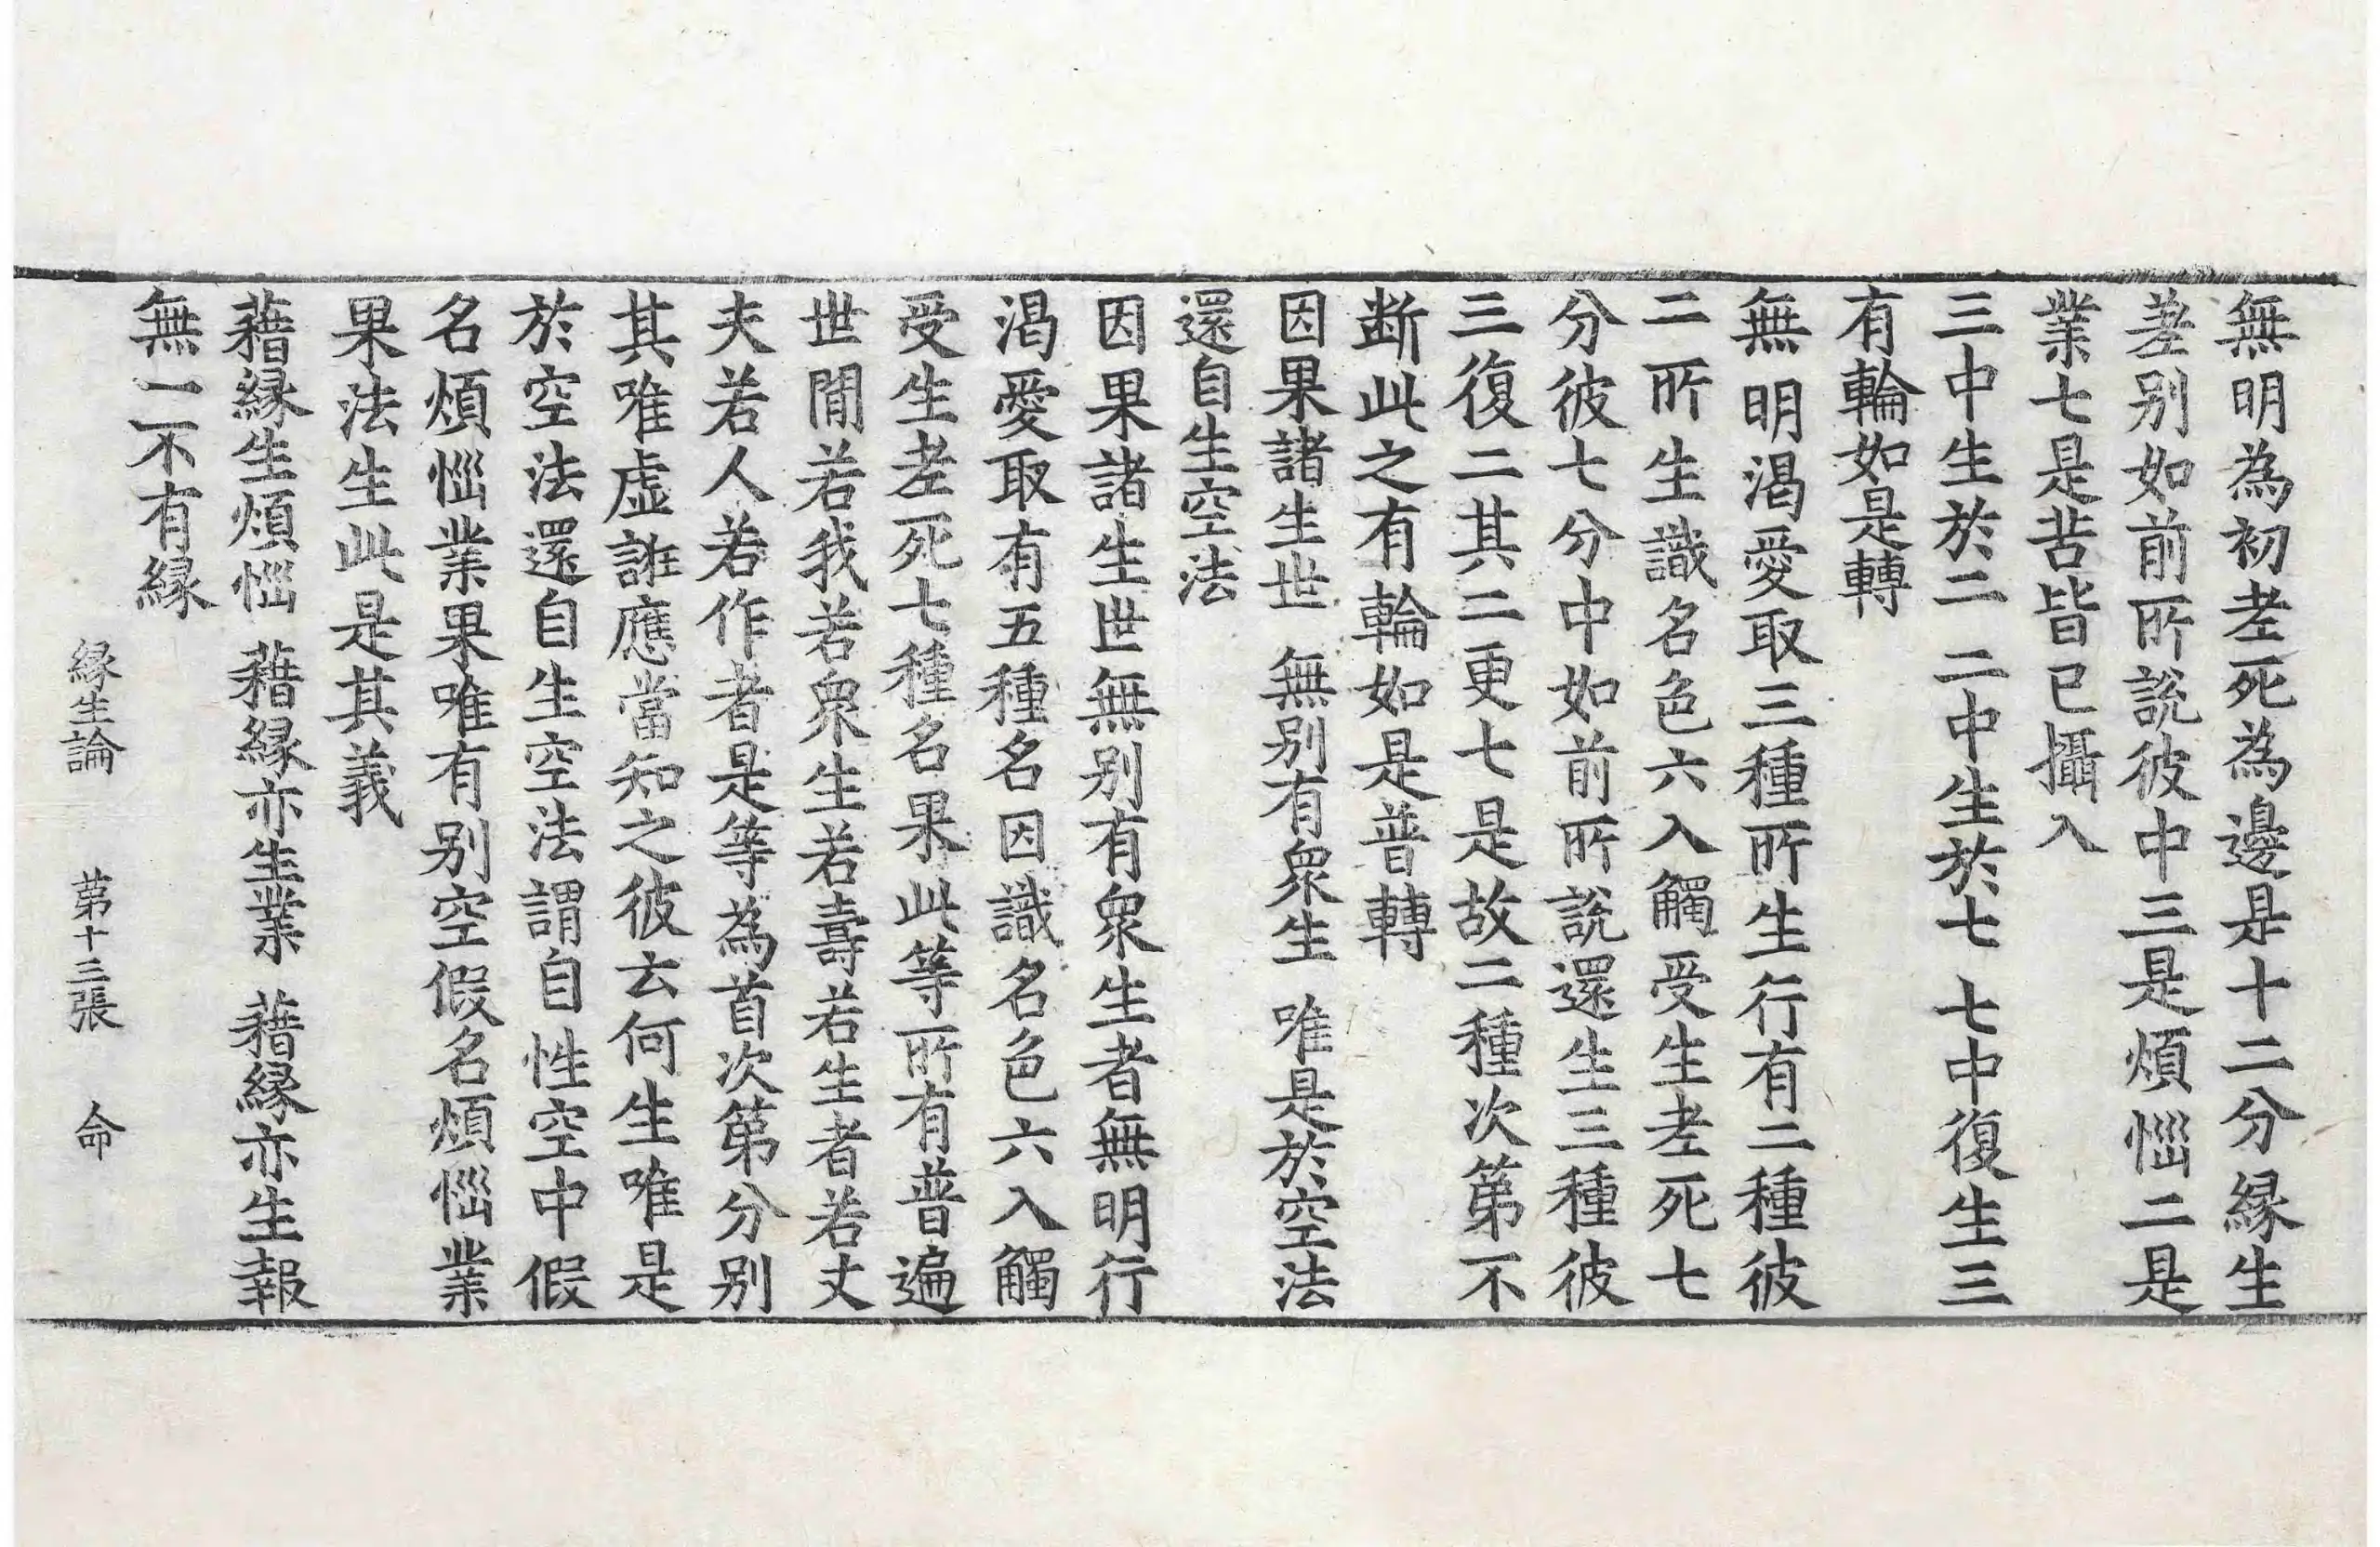 無明為初老死為邊是十二分緣生
差別如前所說彼中三是煩惱二是
業七是苦皆已攝入
三中生於二　二中生於七　七中復生三
有輪如是轉
無明渴愛取三種所生行有二種彼
二所生識名色六入觸受生老死七
分彼七分中如前所說還生三種彼
三復二其二更七是故二種次第不
断此之有輪如是普轉
因果諸生世　無別有衆生　唯是於空法
還自生空法
因果諸生世無別有衆生者無明行
渴愛取有五種名因識名色六入觸
受生老死七種名果此等所有普遍
世閒若我若衆生若壽若生者若丈
夫若人若作者是等為首次第分別
其唯虛誑應當知之彼云何生唯是
於空法還自生空法謂自性空中假
名煩惱業果唯有別空假名煩惱業
果法生此是其義
藉緣生煩惱　藉緣亦生業　藉緣亦生報
無一不有緣
緣生論　第十三張　命